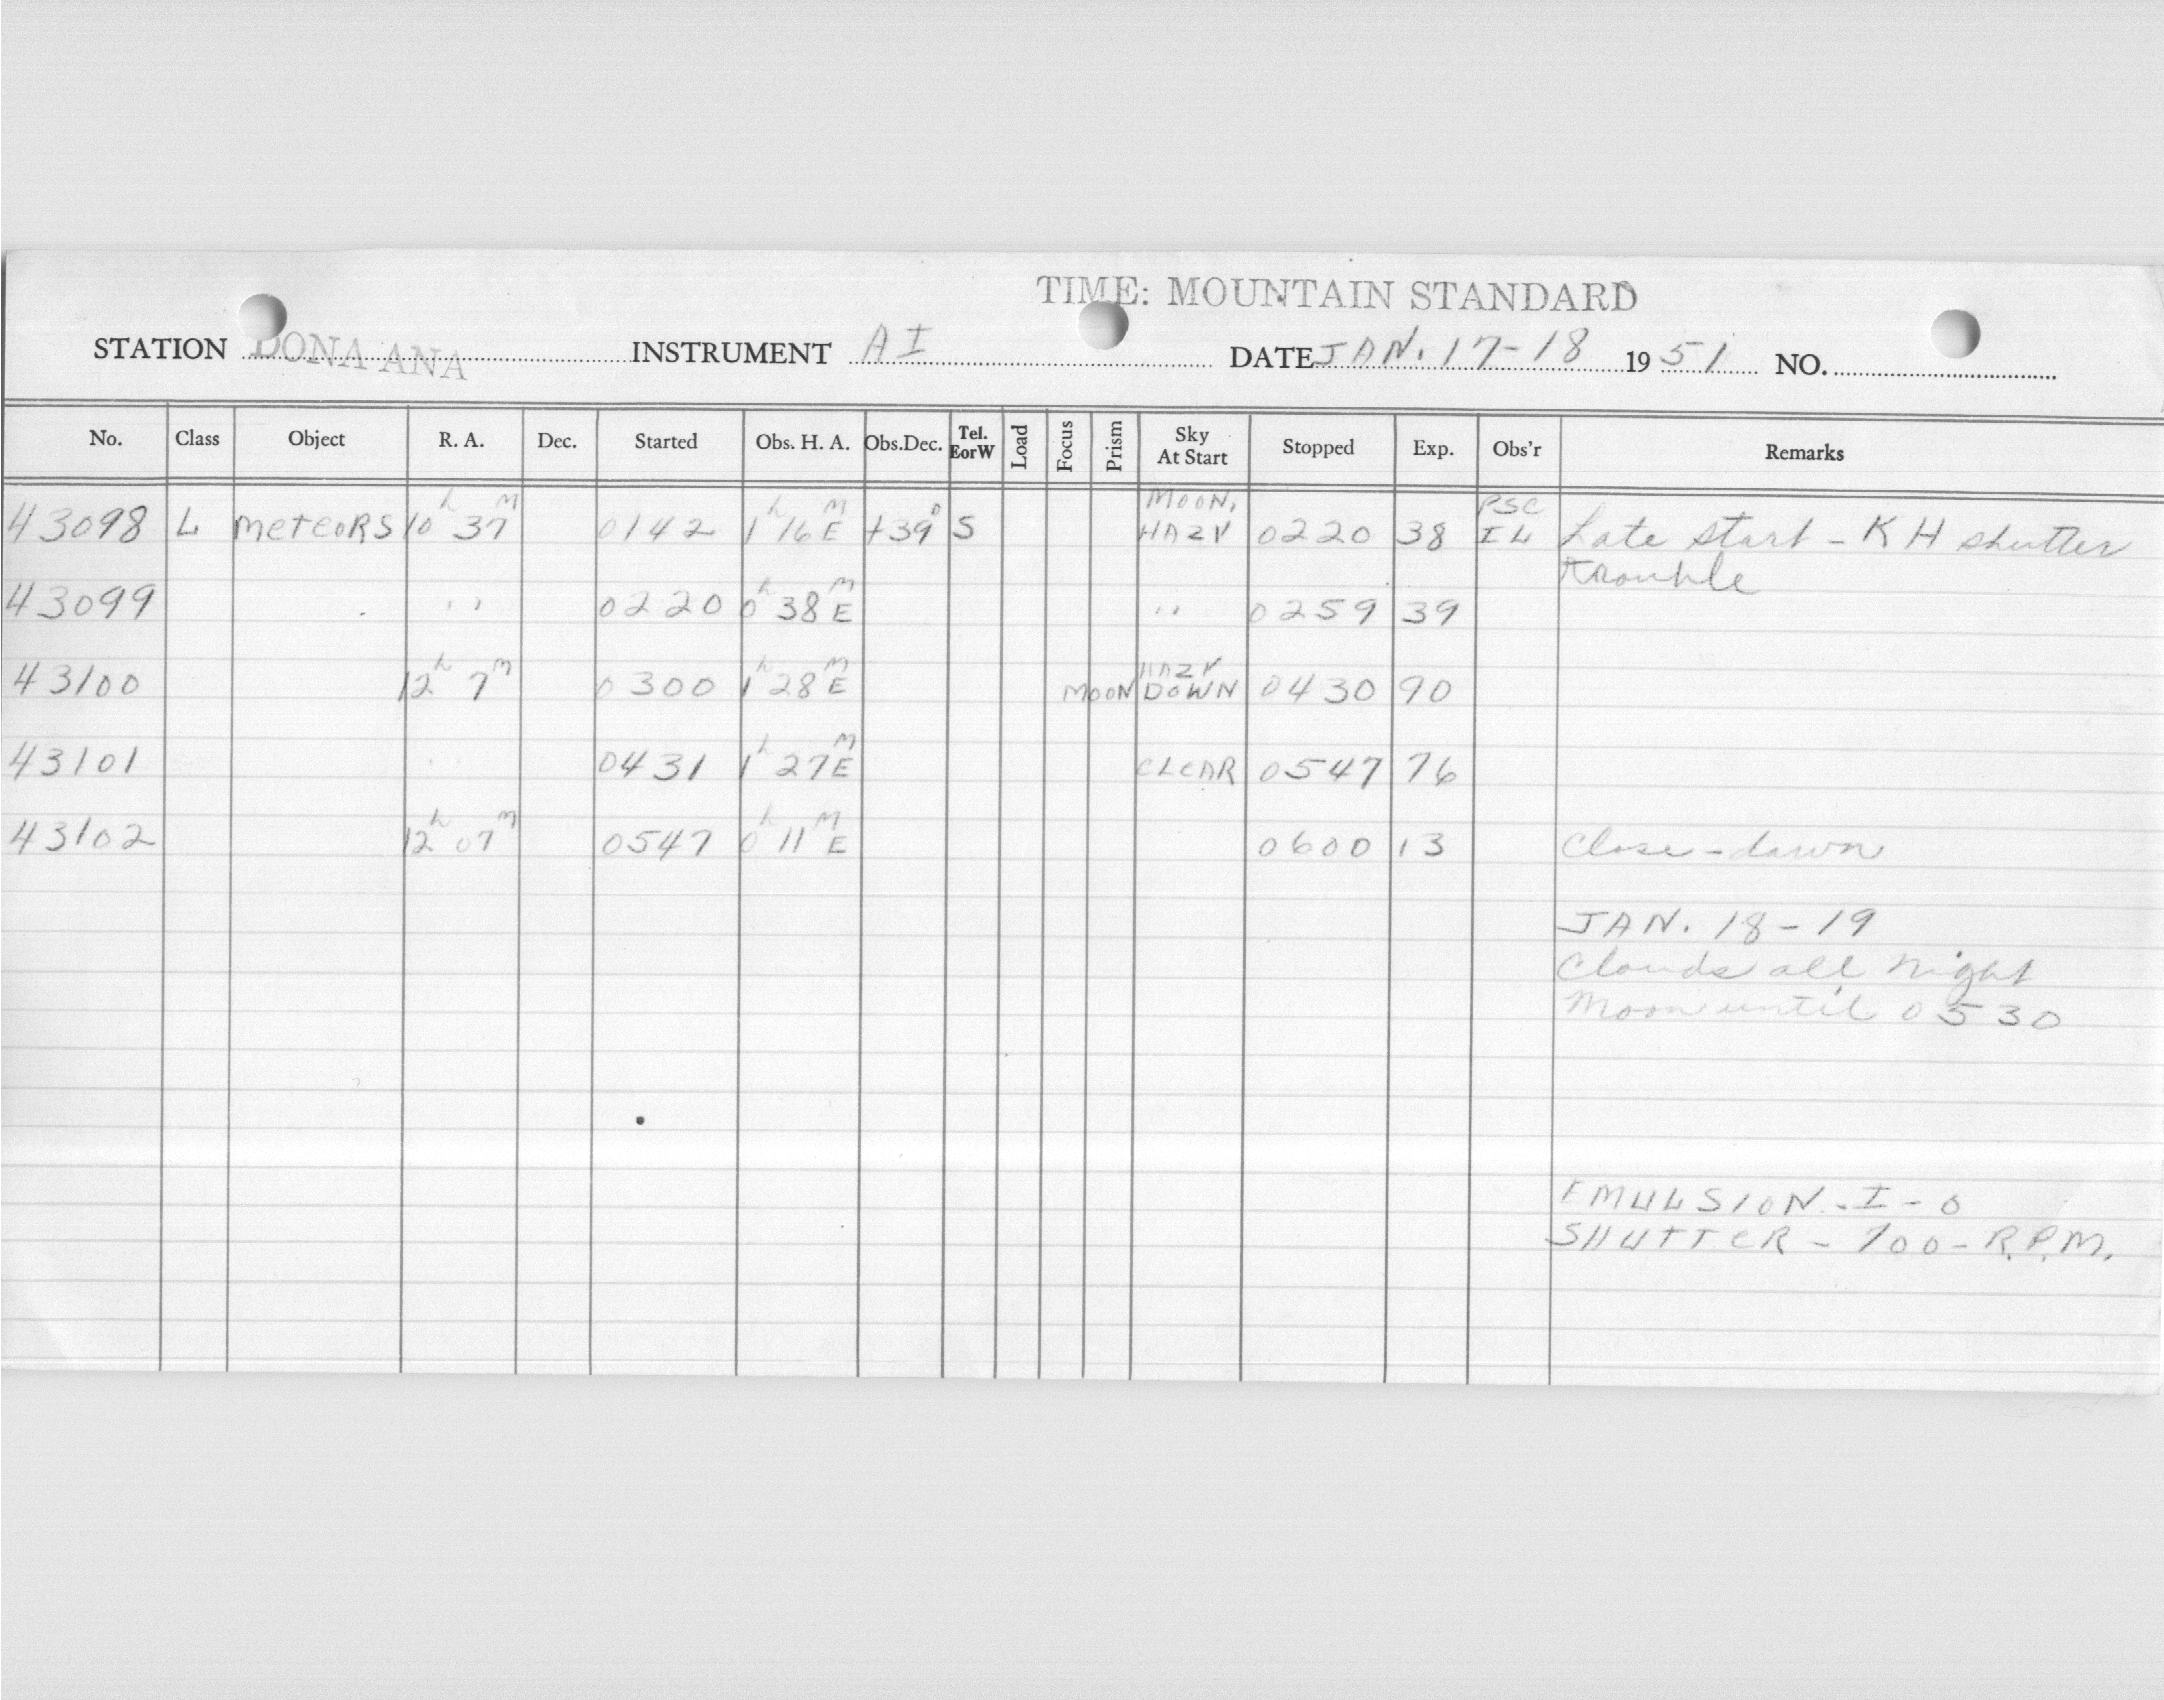 TIME: MOUNTAIN STANDARD
STATION DONA ANA INSTRUMENT AI DATE JAN. 17-18 1951 NO.
No. Class Object R. A. Dec. Started Obs. H. A. Obs.Dec. Tel. EorW Load Focus Prism Sky At Start Stopped Exp. Obs'r Remarks
43098 L METEORS 10h 37M 0142 1h 16M E +39° S MOON, HAZY 0220 38 PSC IL Late start - KH shutter
trouble
43099 " 0220 0h 38M E " 0259 39
43100 12h 7M 0300 1h 28M E HAZY MOON DOWN 0430 90
43101 " 0431 1h 27M E CLEAR 0547 76
43102 12h 07M 0547 0h 11M E 0600 13 Close-dawn
JAN. 18-19
Clouds all night
Moon until 0530
EMULSION - I-O
SHUTTER - 700 - R.P.M.